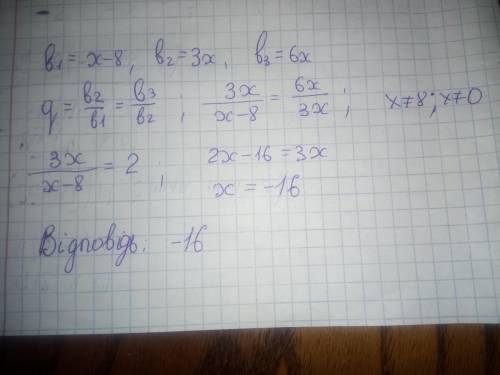 b₁=x-8, b₂=3x, b₃=6x
q = b₂/b₁ = b₃/b₂ ; 3x/(x-8) = 6x/3x ; x≠8; x≠0
3x/(x-8) = 2 ; 2x-16=3x
x=-16
Відповідь: -16